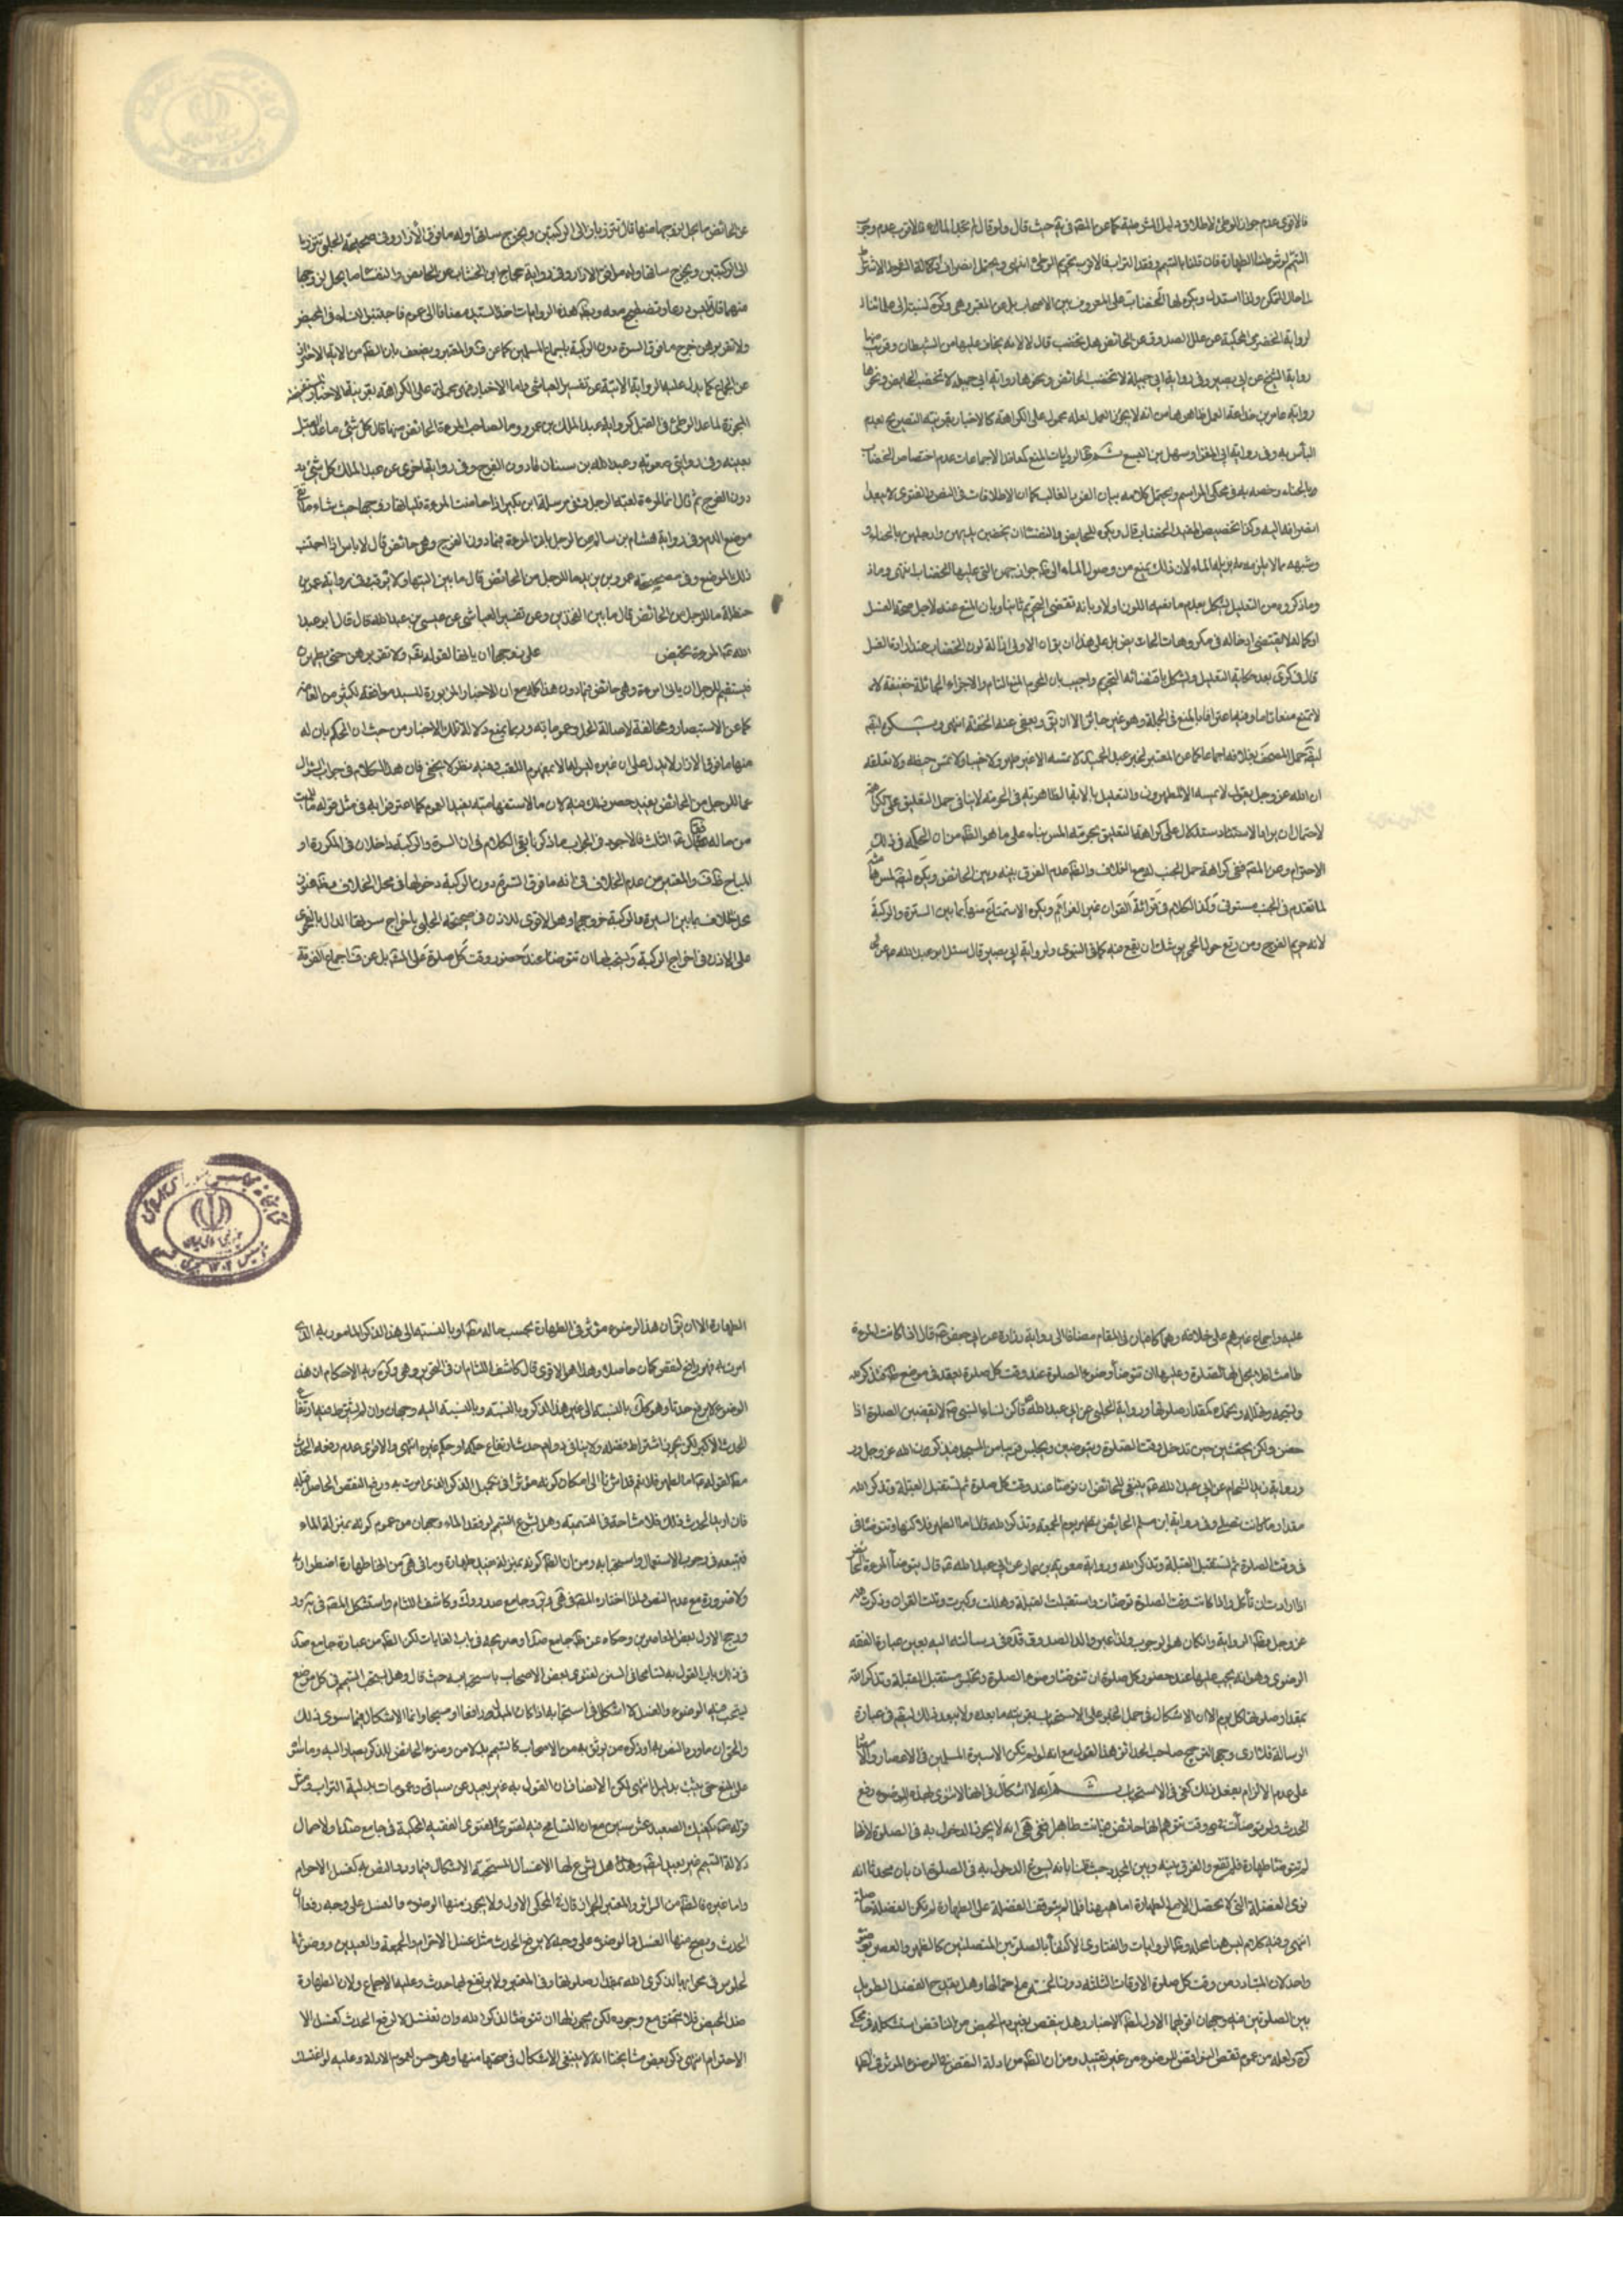 فالاقوى عدم جواز الوطئ لاطلاق دليل الشرطية كما عن المصّ في حيث قال ولو قلنا
التيمم لو شرطنا الطهارة فان قلنا بالتيمم وفقد التراب فالاقرب تحريم الوطئ انتهى ويحتمل
بحال التمكن ولذا استدل ويكره لها الخضاب على المعروف بين الاصحاب بل عن المعتبر وهى وكرى نسبته الى علمائنا
لرواية الحضرمى المحكية عن علل الصدوق عن الحائض هل تختضب قال لا لانه يخاف عليها من الشيطان وقريب منها
رواية الشيخ عن ابى بصير وفى رواية ابى جميلة لا تختضب الحائض ونحوها رواية ابى جميلة لا تختضب الحايض ونحوها
رواية عامر بن جذاعة لعله محمول على الكراهة كالاخبار بقرينة التصريح بعدم
البأس به وفى رواية ابى المغرا وسهل بن اليسع ثم ظ الروايات المنع كمعاقد الاجماعات عدم اختصاص الخضاب
وبالحناء وخصه به فى محكى المراسم ويحتمل كلامه بيان الفرد الغالب كما ان الاطلاقات فى النص والفتوى لا يبعد
انصرافه اليه وكذا تخصيص المفيد الخضاب قال ويكره للحايض والنفساء ان تخضبن ايديهن وارجلهن بالحناء و
وشبهه مما لا يزيله الماء لان ذلك يمنع من وصول الماء الى ظ جوارحهن التى عليها الخضاب انتهى وما ذ
وما ذكره من التعليل يشكل بعدم مانعية اللون اولا وبانه تقتضى التحريم ثانيا وبان المنع عنه لاجل صحة الغسل
او كماله لا يقتضى ادخاله فى مكروهات الحائض بل على هذا ان يق ان الاولى ازالة لون الخضاب عند ارادة الغسل
قال فى كرى بعد حكاية التعليل ويشكل باقتضائه التحريم واجيب بان المحرم المنع التام والاجزاء الحائلة خفيفة لا
لا تمنع منعا تاما وفيه اعتراف بالمنع فى الجملة وهو غير جائز الا ان يق ويعفى عنه لخفته انتهى و يكره لها
ايضا حمل المصحف بغلافه اجماعا كما عن المعتبر لخبر عبد الحميد لا تمسه الا على طهر ولا جنبا ولا تمس خيطه ولا تعلقه
ان الله عز وجل يقول لا يمسه الا المطهرون والتعليل بالاية الظاهرة فى الحرمة لا ينافى حمل التعليق على الكراهة
لاحتمال ان يراد بالاستشهاد استدلال على كراهة التعليق بحرمة المس بناء على ما هو الظ من ان الحكمة فى ذلك
الاحترام وعن المصّ نفى كراهة حمل الجنب لدعوى الخلاف والظ عدم الفرق بينه وبين الحائض ويكره ايضا لمس هامشه
لما تقدم فى الجنب مستوفى وكذا الكلام فى قرائة القران غير العزائم ويكره الاستمتاع منها بما بين السرة والركبة
لانه حريم الفرج ومن رتع حول الحمى يوشك ان يقع فيه كما فى النبوى ولرواية ابى بصير قال سئل ابو عبد الله
عن الحائض ما يحل لزوجها منها قال تتزر بازار الى الركبتين ويخرج ساقها وله ما فوق الازار وفى صحيحة الحلبى تتزر با
الى الركبتين وتخرج سرتها وله ما فوق الازار وفى رواية حجاج الخشاب عن الحايض والنفساء ما يحل لزوجها
منها قال تلبس درعا وتضطجع معه وبظ هذه الروايات اخذ السيد مضافا الى عموم فاعتزلوا النساء فى المحيض
ولا تقربوهن خرج ما فوق السرة ودون الركبة باجماع المسلمين كما عن والمعتبر ويضعف بان الظ من الاية الاحتراز
عن الجماع كما يدل عليه الرواية الاتية عن تفسير العياشى واما الاخبار فهى محمولة على الكراهة بقرينة الاخبار
المجوزة لما عدا الوطئ فى القبل كرواية عبد الملك بن عمرو وما لصاحب المرءة الحائض منها قال كل شئ ما عدا القبل
بعينه وفى روايتى معوية وعبد الله بن سنان ما دون الفرج وفى رواية اخرى عن عبد الملك كل شئ
دون الفرج ثم قال انما المرءة لعبة الرجل وفى مرسلة ابن بكير اذا حاضت المرءة فليأتها زوجها حيث شاء ما اتقى
موضع الدم وفى رواية هشام بن سالم عن الرجل ياتى المرءة فيما دون الفرج وهى حائض قال لا باس اذا اجتنب
ذلك الموضع وفى صحيحة عمرو بن يزيد ما للرجل من الحائض قال ما بين اليتيها ولا يوقب وفى رواية عمر بن
حنظلة ما للرجل من الحائض قال ما بين الفخذين وعن تفسير العياشى عن عيسى بن عبد الله قال قال ابو عبد
الله ع المرءة تحيض على زوجها ان ياتيها لقوله تع ولا تقربوهن حتى يطهرن
فيستقيم للرجل ان ياتى امرءة وهى حائض فيما دون هذا كله مع ان الاخبار المزبورة للسيد موافقة لكثير من العامة
كما عن الاستبصار ومخالفة لاصالة الحل وعموماته وربما يمنع دلالة تلك الاخبار من حيث ان الحكم بان له
منها ما فوق الازار لا يدل على ان غيره ليس له الا بمفهوم اللقب وفيه نظر لا يخفى فان هذا الكلام فى جواب السؤال
عما للرجل من الحائض يفيد حصر ذلك فيه لان ما الاستفهامية يفيد العموم كما اعترفوا به فى مثل قوله ما للميت
من ماله فقال ع الثلث فالاجود فى الجواب ما ذكرنا بقى الكلام فى ان السرة والركبة داخلان فى المكروه او
المباح ظ والمعتبر من عدم الخلاف فى انه ما فوق السرة ودون الركبة دخولهما فى محل الخلاف
محل الخلاف بما بين السرة والركبة خروجهما وهو الاقوى للاذن فى صحيحة الحلبى باخراج سرتها الدال بالفحوى
على الاذن فى اخراج الركبة ويستحب لها ان تتوضا عند حضور وقت كل صلوة على المشهور بل عن اجماع الفرقة
عليه واجماع غيرهم على خلافه وهما كافيان فى المقام مضافا الى رواية زرارة عن ابى جعفر ع قال اذا كانت المرءة
طامثا فلا يحل لها الصلوة وعليها ان تتوضأ وضوء الصلوة عند وقت كل صلوة ثم تقعد فى موضع طاهر فتذكر الله
وتسبحه وتهلله وتحمده كمقدار صلوتها ورواية الحلبى عن ابى عبد الله ع وكن نساء النبى ص لا يقضين الصلوة اذا
حضن ولكن يحتشين حين تدخل وقت الصلوة ويتوضين ويجلسن قريبا من المسجد فيذكرون الله عز وجل ور
ورواية زيد الشحام عن ابى عبد الله ع ينبغى للحائض ان تتوضأ عند وقت كل صلوة ثم تستقبل القبلة وتذكر الله
مقدار ما كانت تصلى وفى رواية ابن مسلم الحائض تطهر يوم الجمعة وتذكر الله قال اما الطهر فلا ولكنها تتوضأ فى
فى وقت الصلوة ثم تستقبل القبلة وتذكر الله ورواية معوية بن عمار عن ابى عبد الله ع قال تتوضأ المرءة الحائض
اذا ارادت ان تأكل واذا كانت وقت الصلوة توضأت واستقبلت القبلة وهللت وكبرت وتلت القران وذكرت الله
عز وجل وظ الرواية وان كان هو الوجوب ولذا عبر والد الصدوق قده فى رسالته اليه بعين عبارة الفقه
الرضوى وهو انه يجب عليها عند حضور كل صلوة ان تتوضأ وضوء الصلوة وتجلس مستقبل القبلة وتذكر الله
بمقدار صلوتها كل يوم الا ان الاشكال فى حمل الخبر على الاستحباب بقرينة ما بعده ولا يبعد ذلك ايضا فى عبارة
الرسالة فلا ارى وجها لترجيح صاحب الحدائق هذا القول مع انه لو لم تكن الا سيرة المسلمين فى الاعصار والامصار
على عدم الالتزام بفعل ذلك كفى فى الاستحباب ثم انه لا اشكال فى انها لا تنوى بهذا الوضوء رفع
الحدث ولو توضأت فى وقت توهم انها حائض فبانت طاهرا ففى هى انه لا يجوز الدخول به فى الصلوة لانها
لم تنو طهارة فلم تقع والفرق بينه وبين المجدد حيث قلنا بانه يسوغ الدخول به فى الصلوة ان بان محدثا انه
نوى الفضيلة التى لا تحصل الا مع الطهارة اما هيهنا فلما لم يتوقف الفضيلة على الطهارة لم تكن الفضيلة حاصلة
انتهى وفيه كلام ليس هنا محله وظ الروايات والفتاوى الاكتفاء بالصلوتين المتصلتين كالظهر والعصر بوضوء
واحد لان المتبادر من وقت كل صلوة الاوقات الثلثة دون الخمسة مع احتمالها وهل يقدح الفصل الطويل
بين الصلوتين فيه وجهان اقويهما الاول لظ الاخبار وهل ينتقض بغير دم الحيض من النواقض استشكله فى محكى
كرى ولعله من عموم نقض النواقض للوضوء من غير تقييد ومن ان الظ من ادلة النقض نقض الوضوء المؤثر فى
الطهارة الا ان يق ان هذا الوضوء مؤثر فى الطهارة بحسب حاله مط او بالنسبة الى هذا الذكر المامور به الذى
امرت به فهو رافع لنقص كان حاصلا وهذا هو الاقوى قال كاشف اللثام ان فى التحرير وهى وكرة به الاحكام ان هذا
الوضوء لا يرفع حدثا وهو كك بالنسبة الى غير هذا الذكر وبالنسبة وبالنسبة اليه وجهان وان لم يشترط منها ارتفاع
الحدث الاكبر لكن يجوز اشتراط فضله ولا ينافى دوام حدثها ارتفاع حكمه او حكم غيره انتهى والاقوى عدم رفعه الحدث
مط لقوله ع اما الطهر فلا نعم قد اشرنا الى امكان كونه مؤثرا فى تكميل الذكر الذى امرت به ورفع النقص الحاصل قبله
فان اريد بالحدث ذلك فلا مشاحة فى التسمية وهل يشرع التيمم لو فقد الماء وجهان من عموم كونه بمنزلة الماء
فيتبعه فى وجوب الاستعمال واستحبابه ومن ان الظ كونه بمنزلة فيما فيه طهارة وما فى هى من انها طهارة اضطرارية
ولا ضرورة مع عدم النص ولذا اختاره المصّ فى هى وير وجامع صد وروك وكاشف اللثام واستشكل المصّ فى ير
ورجح الاول بعض المعاصرين وحكاه عن ظ جامع صد وصريحه فى باب الغايات لكن الظ من عبارة جامع صد
فى ذلك باب القول به تسامحا فى السنن لفتوى بعض الاصحاب باستحبابه حيث قال وهل يستحب التيمم فى كل موضع
يستحب فيه الوضوء والغسل لا اشكال فى استحبابه اذا كان المبدل رافعا او مبيحا وانما الاشكال فيما سوى ذلك
والحق ان ما ورد النص به او ذكره من يوثق به من الاصحاب كالتيمم بدلا من وضوء الحائض للذكر يصار اليه وما
على المنع حتى يثبت بدليل انتهى لكن الانصاف ان القول به غير بعيد عن سياق وعمومات بدلية التراب ومثل
قوله ص يكفيك الصعيد عشر سنين مع ان التسامح فيه لفتوى الفقيه المحكية فى جامع صد ولاحتمال
دلالة التيمم غير بعيد ايضا وهل يشرع لها الاغسال المستحبة الاشكال فيما ورد النص به كغسل الاحرام
واما غيره فالظ من السرائر والمعتبر الجواز قال فى المحكى الاول ولا يجوز منها الوضوء والغسل على وجه رفعهما
الحدث ويصح منها الغسل والوضوء على وجه لا يرفع الحدث مثل غسل الاحرام والجمعة والعيدين ووضوئها
لجلوس فى محرابها لذكر الله بمقدار صلوتها وفى المعتبر ولا يرتفع لها حدث وعليه الاجماع ولان الطهارة
ضد الحيض فلا يتحقق مع وجوده لكن يجوز لها ان تتوضأ لذكر الله وان تغتسل لا لرفع الحدث كغسل الا
الاحرام انتهى ذكر بعض مشايخنا انه لا ينبغى الاشكال فى صحتها منها وهو حسن لعموم الادلة وعليه لو اغتسلت